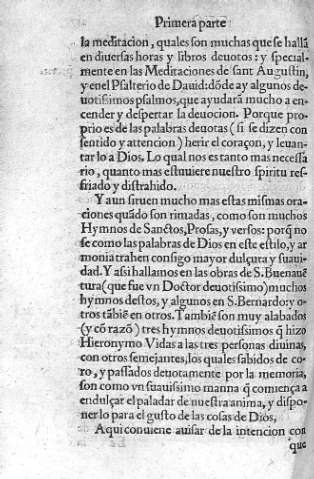 Primera parte
la meditacion, quales son muchas que se hallã
en diuersas horas y libros deuotos: y special-
mente en las Meditaciones de sant Augustin,
y en el Psalterio de Dauid: dõde ay algunos de-
uotissimos psalmos, que ayudará mucho a en-
cender y despertar la deuocion. Porque pro-
prio es de las palabras deuotas (si se dizen con
sentido y attencion) herir el coraçon, y leuan-
tarlo a Dios. Lo qual nos es tanto mas necessa
rio, quanto mas estuuiere nuestro spiritu res-
friado y distrahido.
Y aun siruen mucho mas estas mismas ora-
ciones quãdo son rimadas, como son muchos
Hymnos de Sanctos, Prosas, y versos: porq̃ no
se como las palabras de Dios en este estilo, y ar
monia trahen consigo mayor dulçura y suaui-
dad. Y assi hallamos en las obras de S. Buenauẽ
tura (que fue vn Doctor deuotissimo) muchos
hymnos destos, y algunos en S. Bernardo: y o-
tros tãbiẽ en otros. Tambiẽ son muy alabados
(y cõ razõ) tres hymnos deuotissimos q̃ hizo
Hieronymo Vidas a las tres personas diuinas,
con otros semejantes, los quales sabidos de co-
ro, y passados deuotamente por la memoria,
son como vn suauissimo manna q̃ comiença a
endulçar el paladar de nuestra anima, y dispo-
nerlo para el gusto de las cosas de Dios,
Aqui conuiene auisar de la intencion con
que